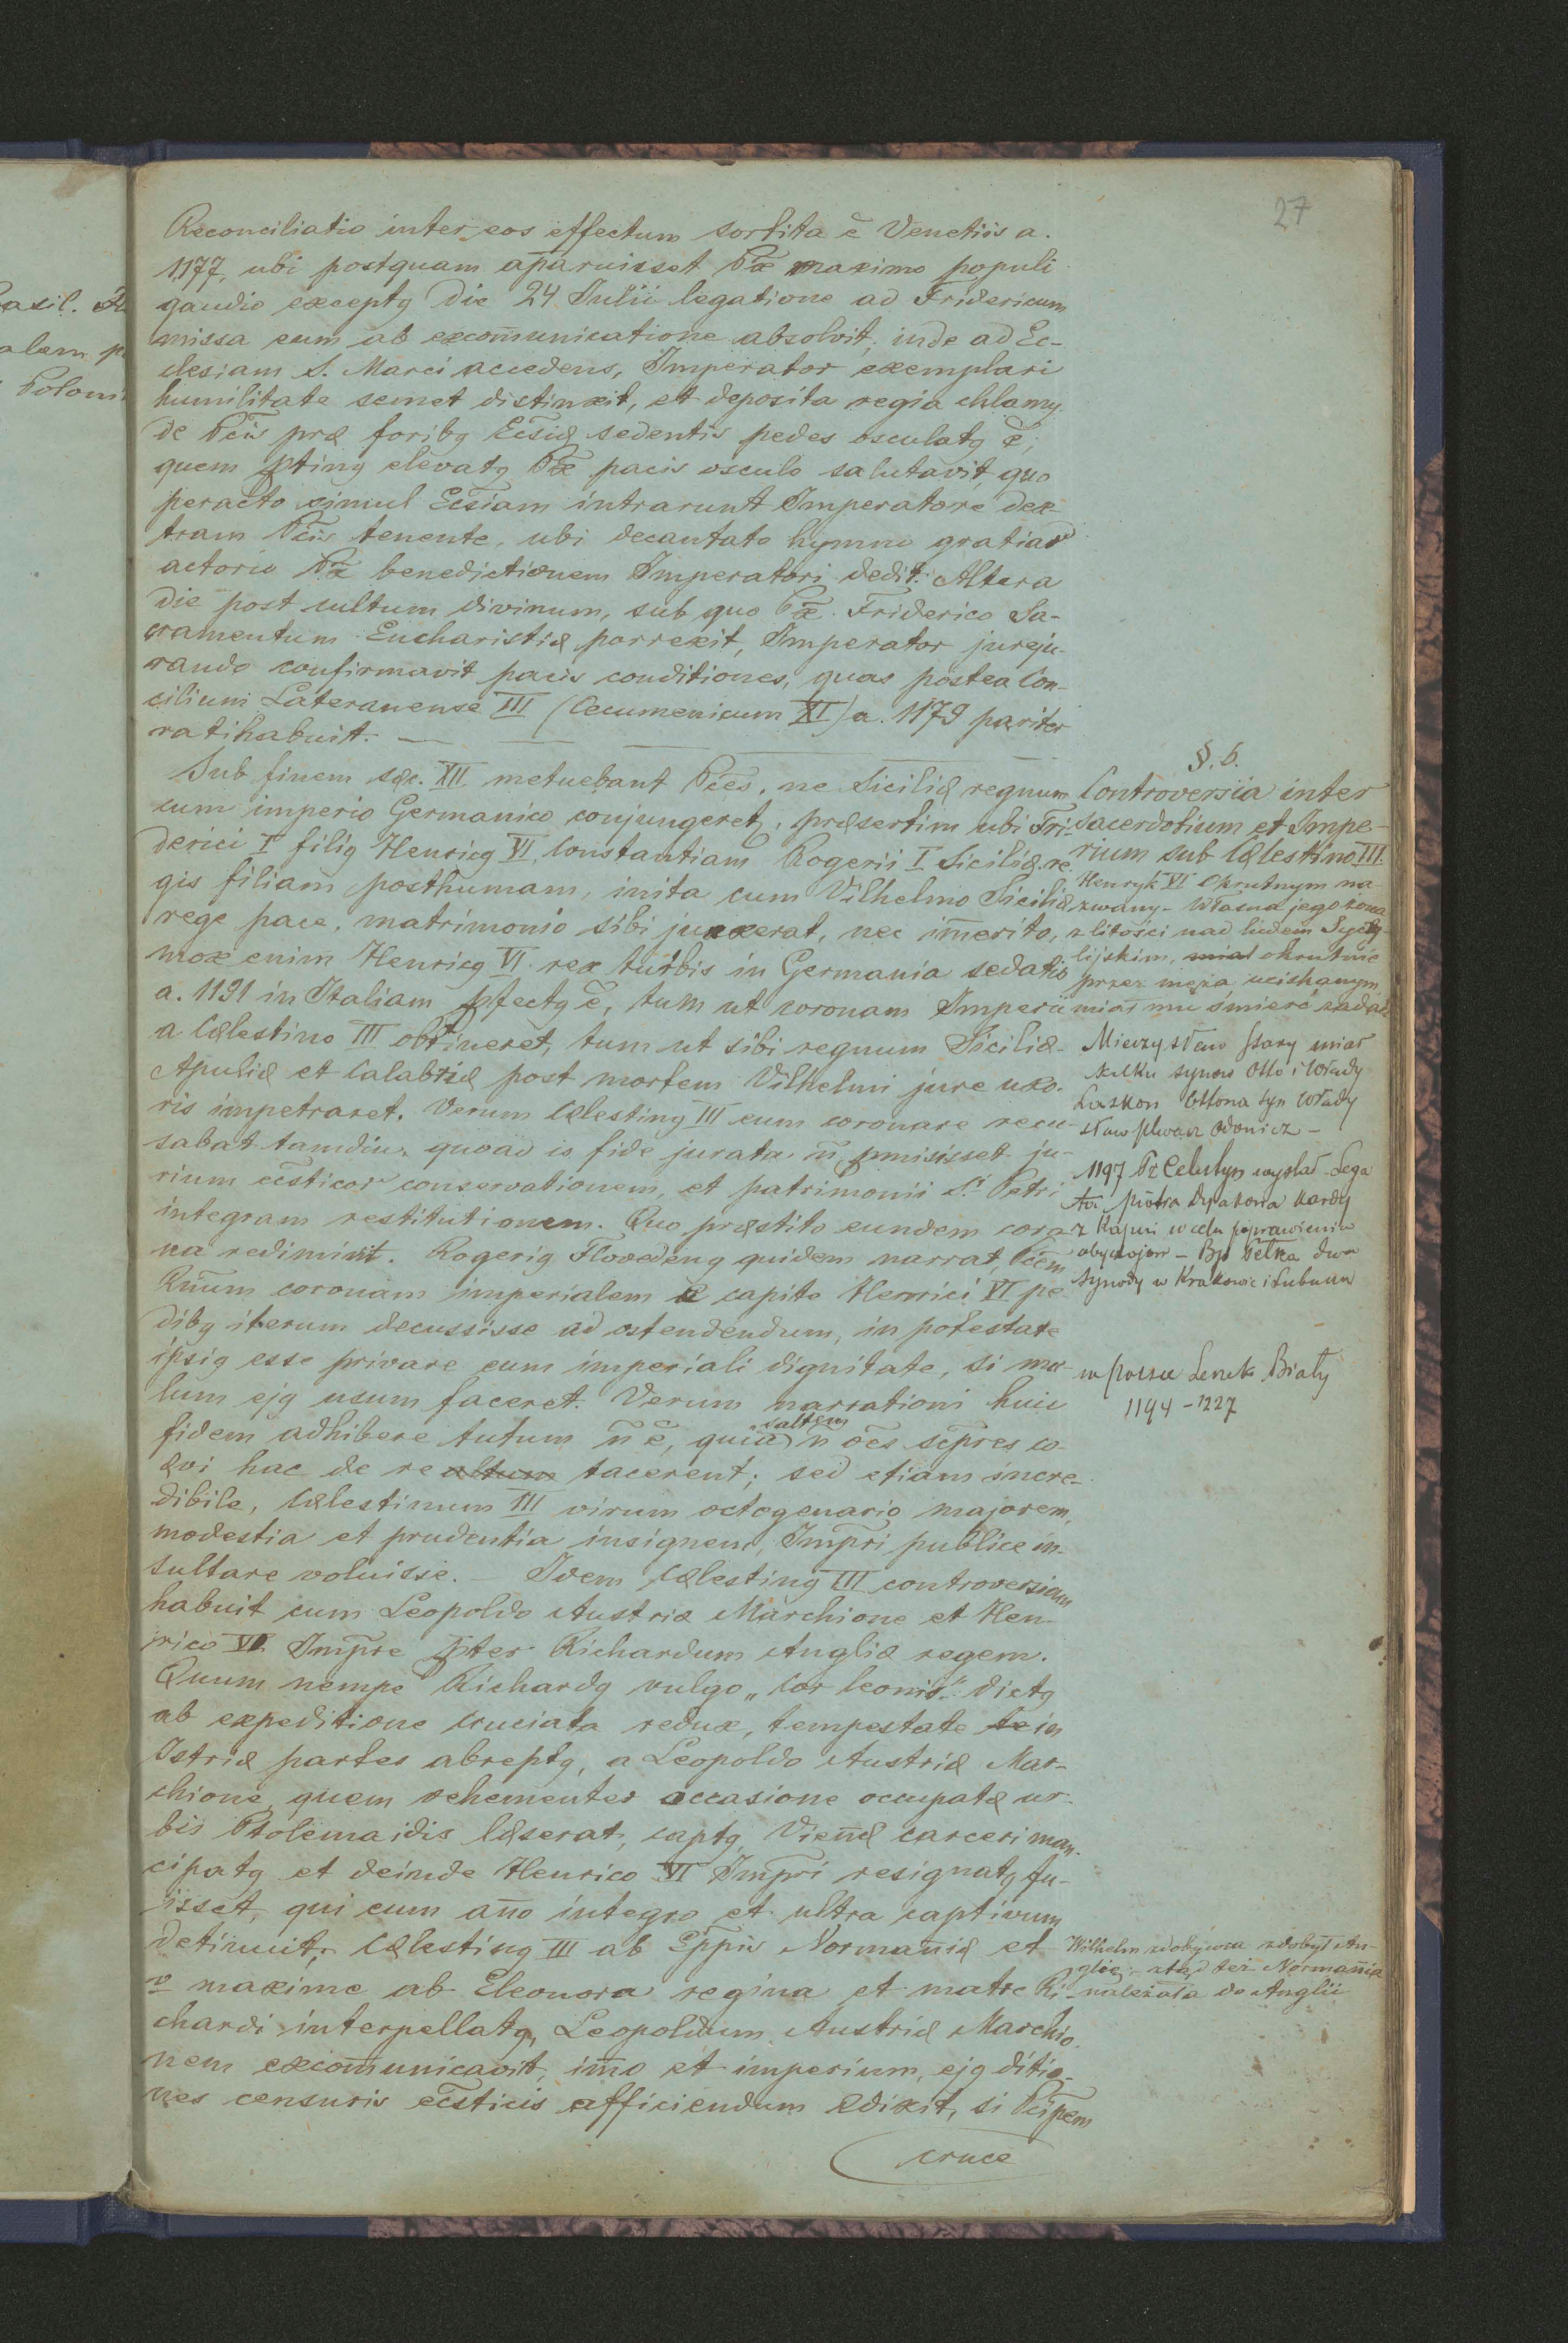 27
Reconciliatio inter eos effectum sortita ē Venetiis a.
1177, ubi postquam aparuisset Pæ maximo populi
gaudio exceptꝯ die 24 Julii legatione ad Fridericum
missa eum ab excom̄unicatione absolvit; inde ad Ec-
clesiam S. Marci accedens, Imperator exemplari
humilitate semet distinxit, et deposita regia chlamy
de Pcis præ foribꝯ Ecsiæ sedentis pedes osculatꝯ ē;
quem ptinꝯ elevatꝯ Pæ pacis osculo salutavit, quo
peracto simul Ecsiam intrarunt Imperatore dex-
tram Pcis tenente, ubi decantato hymno gratiar
actorio Pæ benedictionem Imperatori dedit. Altera
die post cultum divinum, sub quo Pæ Friderico Sa-
cramentum Eucharistiæ porrexit, Imperator jureju-
rando confirmavit pacis conditiones, quas postea Con-
cilium Lateranense III (Oecumenicum XI) a. 1179 pariter
ratihabuit. —
§. 6.
Controversia inter
sacerdotium et Impe-
rium sub Cælestino III.
Sub finem sæc. XII. metuebant Pces, ne Siciliæ regnum
cum imperio Germanico conjungeretꝯ, præsertim ubi Fri-
derici I filiꝯ Henricꝯ VI, Constantiam Rogerii I Siciliæ re-
gis filiam posthumam, inita cum Vilhelmo Siciliæ
rege pace, matrimonio sibi junxerat, nec im̄erito,
mox enim Henricꝯ VI rex turbis in Germania sedatis
a. 1191 in Italiam pfectꝯ ē, tum ut coronam Imperii
a Cælestino III obtineret, tum ut sibi regnum Siciliæ
Apuliæ et Calabriæ post mortem Vilhelmi jure uxo-
ris impetraret. Verum Cælestinꝯ III eum coronare recu-
sabat tamdiu, quoad is fide jurata n̄ pmisisset ju-
rium ecsticor conservationem, et patrimonii S. Petri
integram restitutionem. Quo præstito eundem coro
na redimivit. Rogeriꝯ Flovedenꝯ quidem narrat, Pcem
Rnum coronam imperialem e capite Henrici VI pe-
dibꝯ iterum decussisse ad ostendendum, in potestate
ipsiꝯ esse privare eum imperiali dignitate, si ma-
lum ejꝯ usum faceret. Verum narrationi huic
fidem adhibere tutum n̄ ē, quia saltem n̄ oes scpres co-
ævi hac de re tacerent; sed etiam incre-
dibile, Cælestinum III virum octogenario majorem,
modestia et prudentia insignem, Impri publice in-
sultare voluisse. — Idem Cælestinꝯ III controversiam
habuit cum Leopoldo Austriæ Marchione et Hen-
rico VI Impre pter Richardum Angliæ regem.
Quum nempe Richardꝯ vulgo „Cor leonis" dictꝯ
ab expeditione cruciata redux, tempestate in
Istriæ partes abreptꝯ, a Leopoldo Austriæ Mar-
chione, quem vehementer occasione occupatæ ur-
bis Ptolemaidis læserat, captꝯ, Vien̄æ carceri man-
cipatꝯ et deinde Henrico VI Impri resignatꝯ fu-
isset, qui eum an̄o integro et ultra captivum
detinuit, Cælestinꝯ III ab Eppis Norman̄iæ et
v maxime ab Eleonora regina et matre Ri-
chardi interpellatꝯ, Leopoldum Austriæ Marchio-
nem excom̄unicavit, im̄o et imperium, ejꝯ ditio-
nes censuris ecsticis afficiendum edixit, si Pcipem
cruce
Henryk VI Okrutnym na-
zwany – Własna jego żona
z litości nad ludem Sycy-
lijskim, okrutnie
przez męża uciskanym
miał mu śmierć zadać
Mieczysław Stary miał
kilku synów Otto i Włady
Laskon Ottona syn Włady
sław Odonicz –
1197 Pż Celestyn wysłał Lega
ta Piotra Dyakona Kardy
z Kapui w celu poprawienia
obyczajów – Bp Pełka dwa
Synody w Krakowie i Lubuszu
w Polsce Leszek Biały
1194 – 1227
Wilhelm zdobywca zdobył An-
glię; – ztąd też Norman̄ia
należała do Anglii